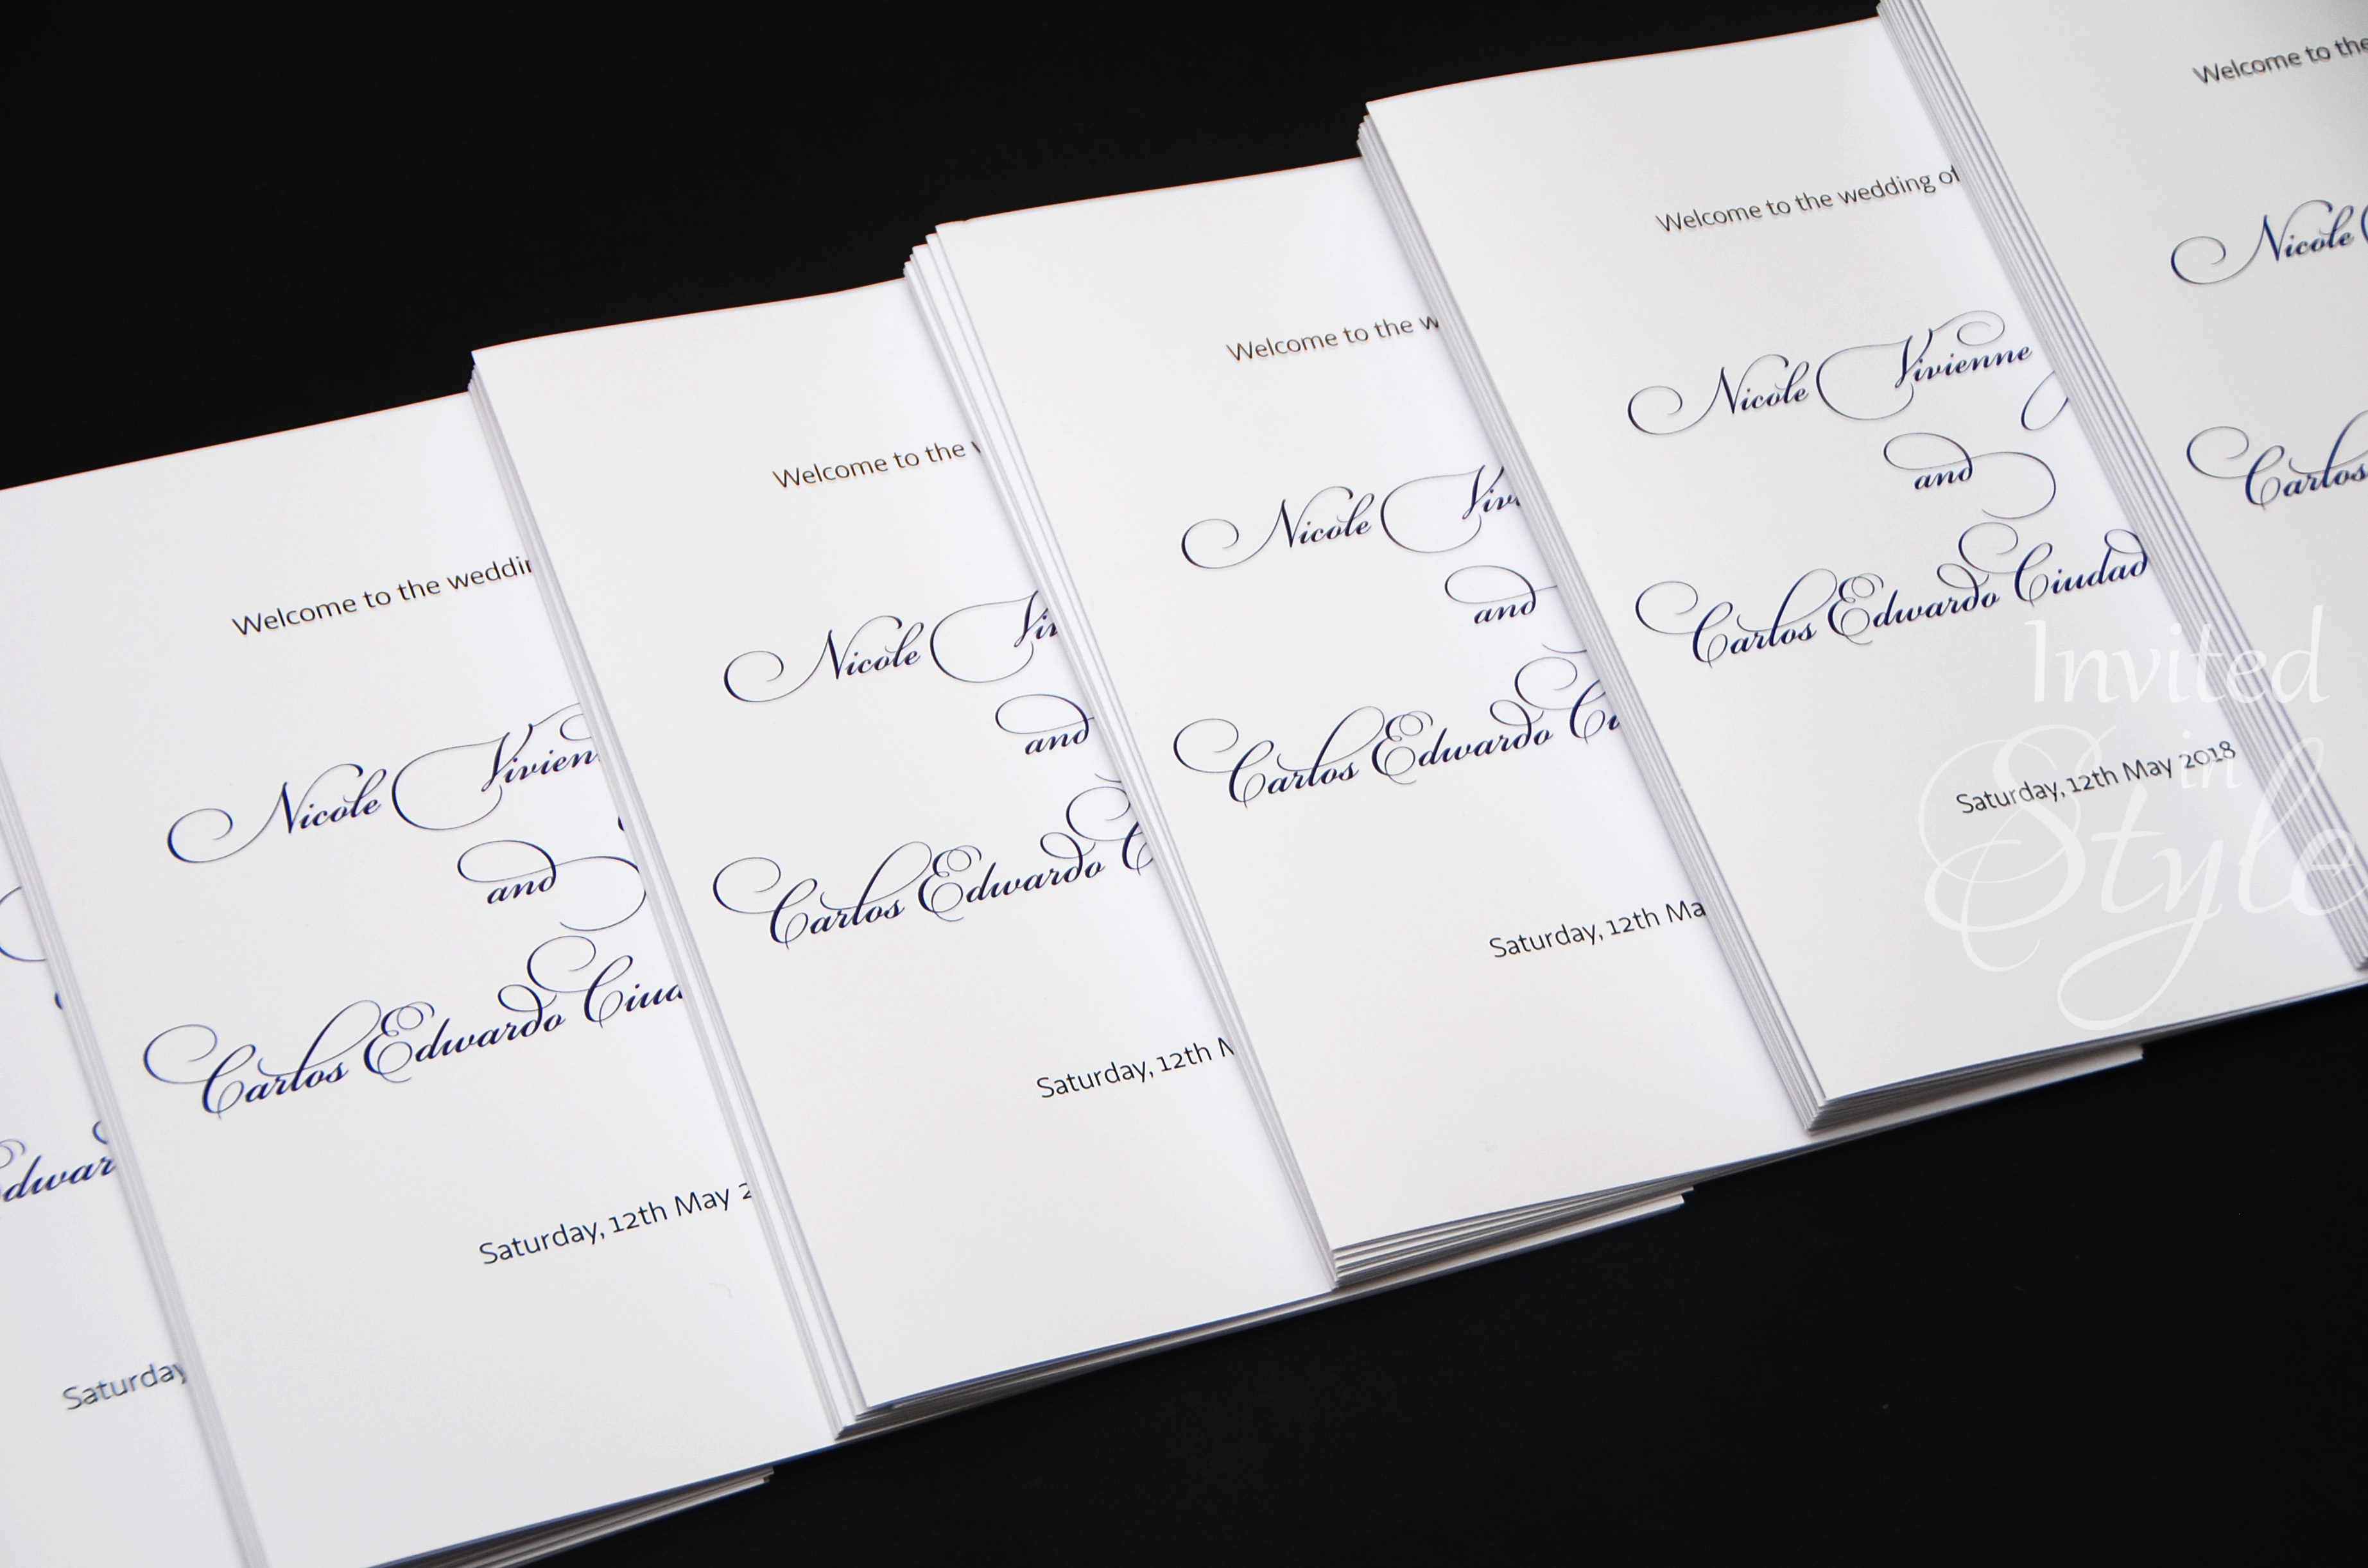 Saturday
Edwar
Welcome to the weddin
Nicole Vivien
and
Carlos Edwardo Ciud
Saturday, 12th May 2
Welcome to the
Nicole Viv
and
Carlos Edwardo C
Saturday, 12th M
Welcome to the w
Nicole Viv
and
Carlos Edwardo Ci
Saturday, 12th Ma
Welcome to the wedding of
Nicole Vivienne
and
Carlos Edwardo Ciudad
Saturday, 12th May 2018
Welcome to the
Nicole
Carlos
Invited
in
Style